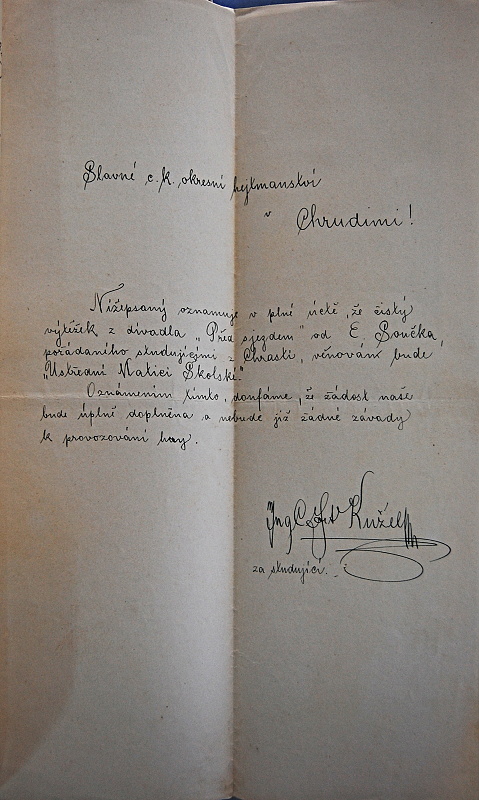 Slavné c. k. okresní hejtmanství
v
Chrudimi!
Nížepsaný oznamuje v plné úctě, že čistý
výtěžek z divadla „Před sjezdem" od E. Součka,
pořádaného studujícími z Chrasti, věnován bude
„Ústřední Matici Školské."
Oznámením tímto, doufáme, že žádost naše
bude úplně doplněna a nebude již žádné závady
k provozování hry.
Kužel
za studující.